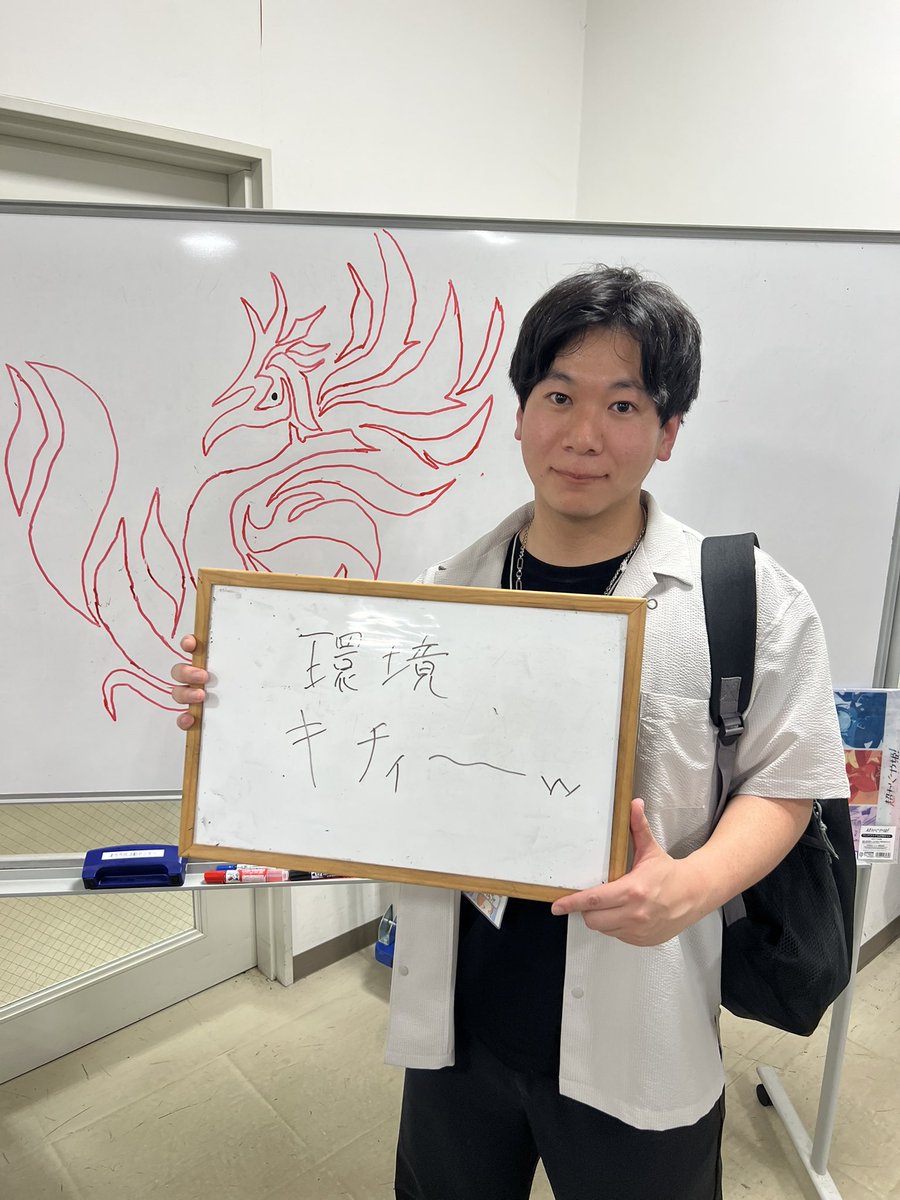 環境
キチィ〜w